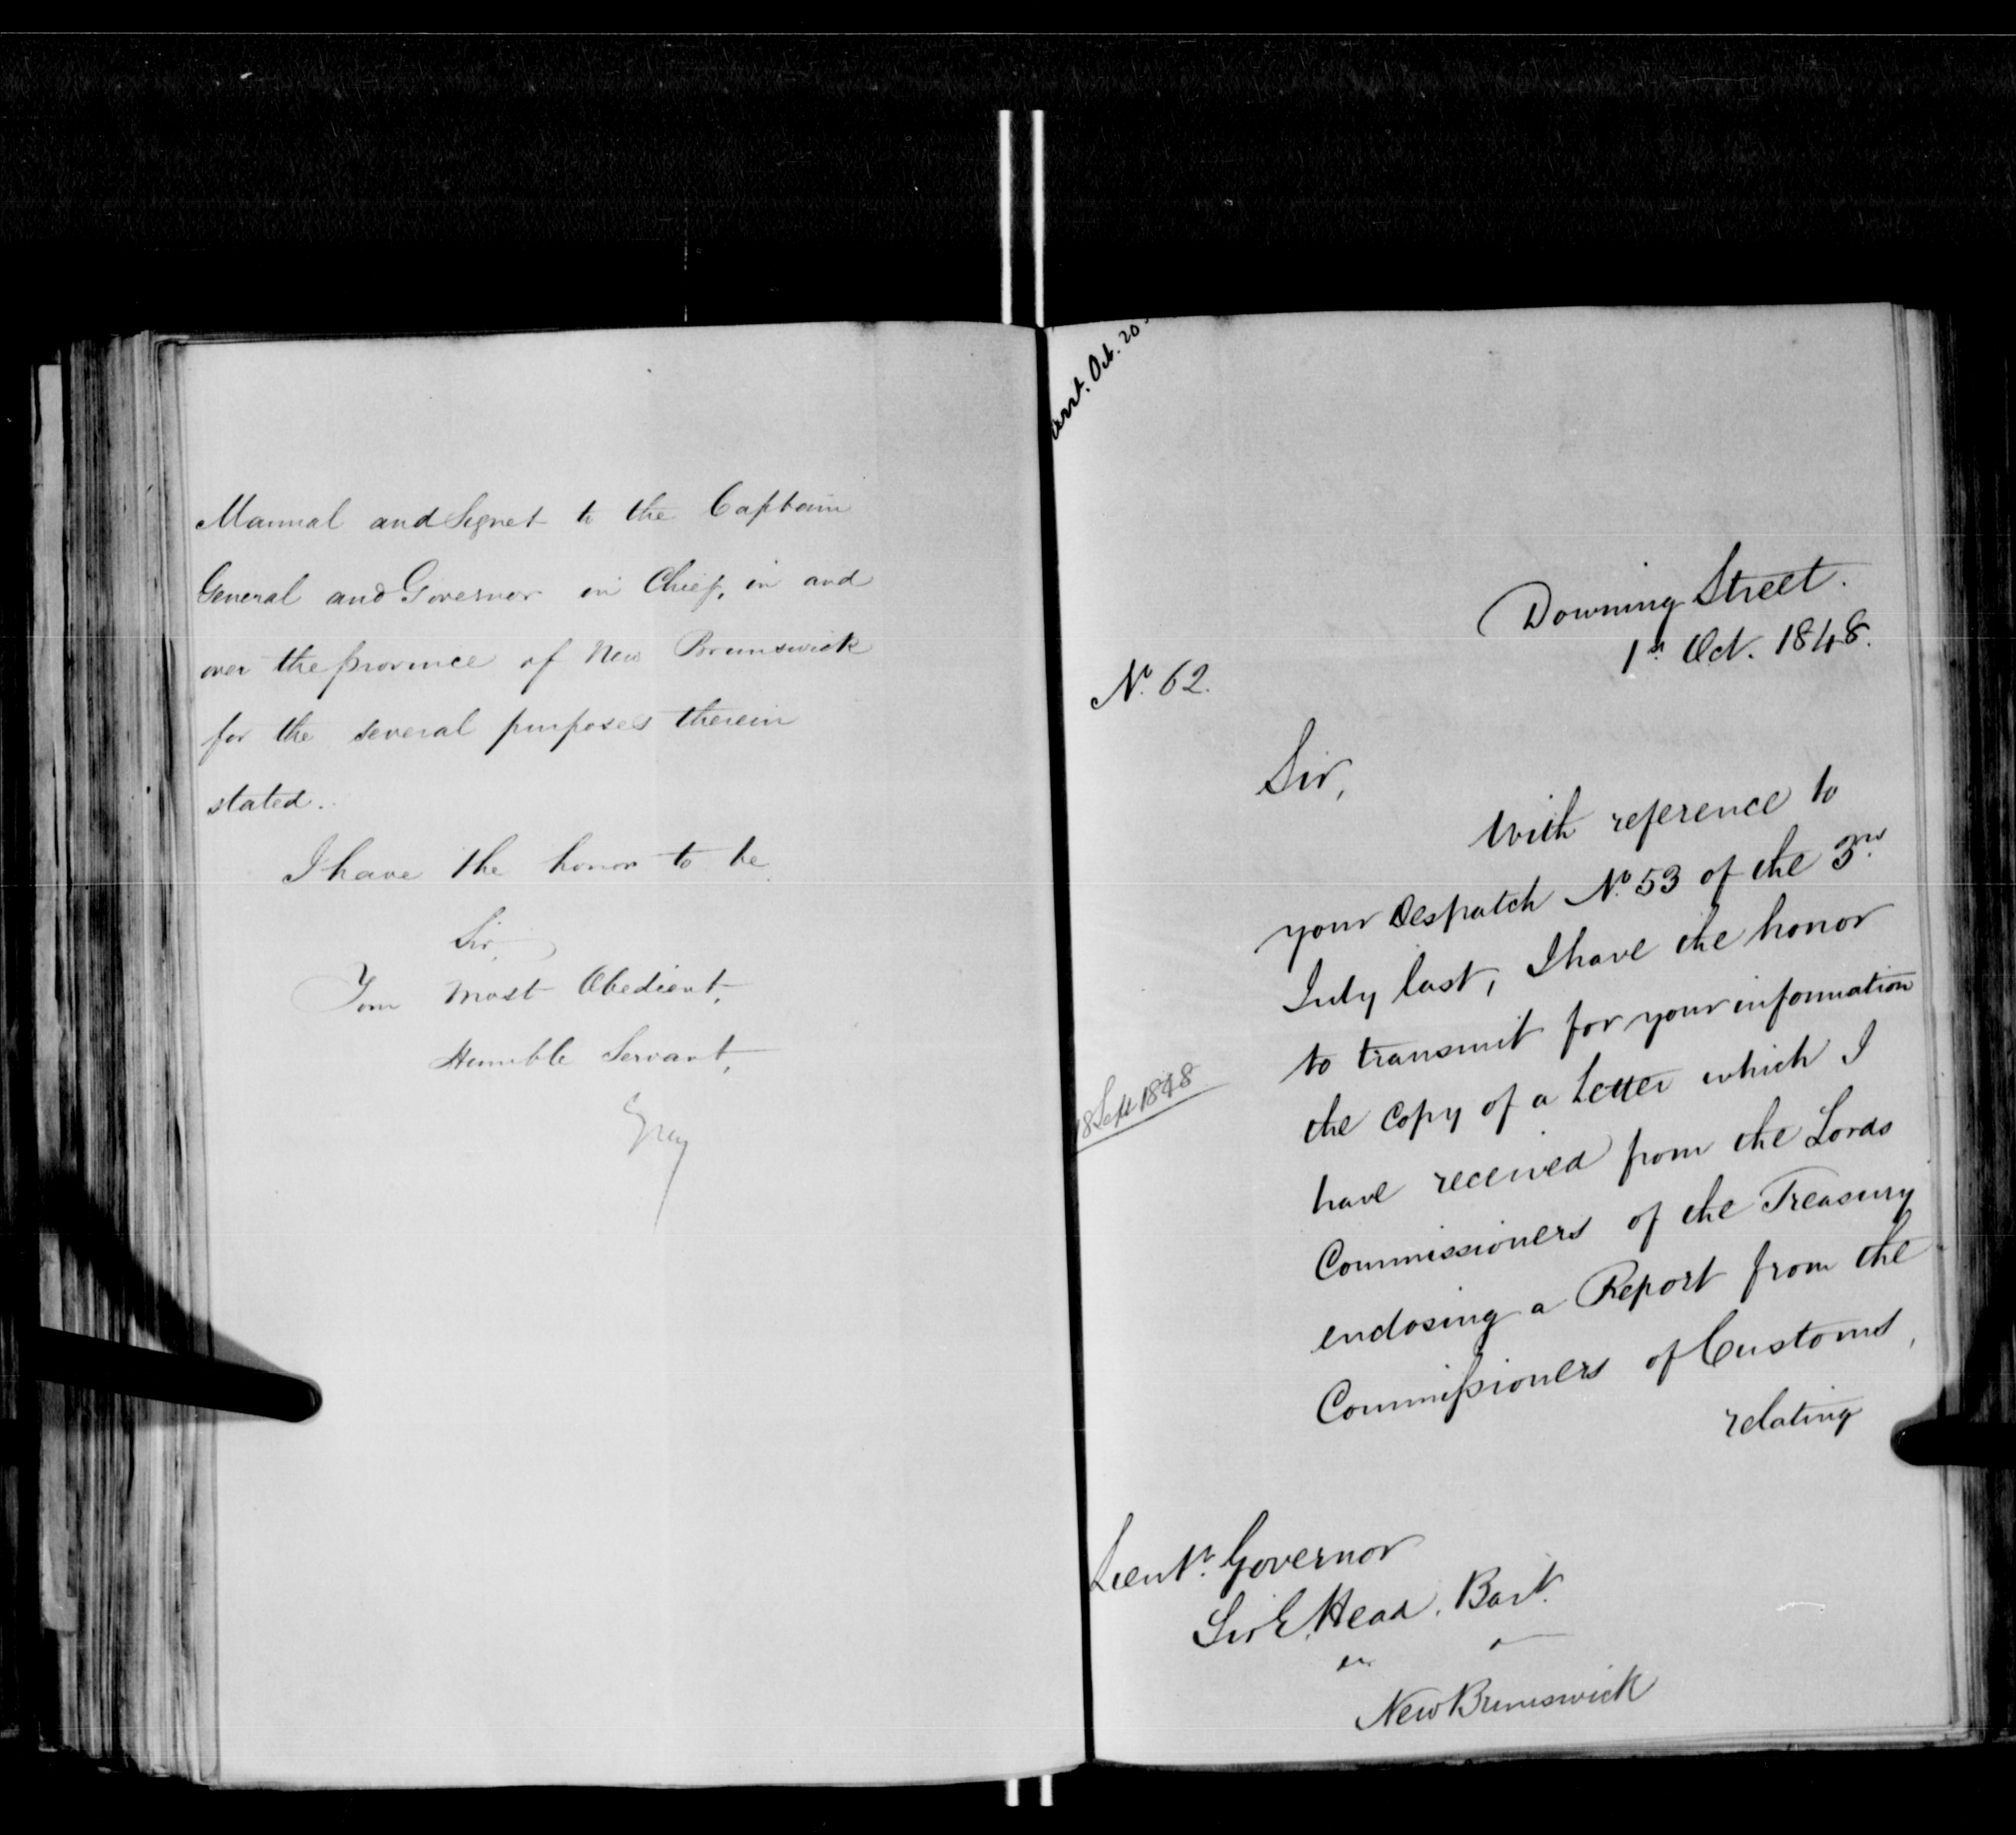 Manual and Signet to the Captain
General and Governor in Chief, in and
over the province of New Brunswick
for the several purposes therein
stated.
I have the honor to be,
Sir,
Your most Obedient,
Humble Servant,
Grey
Oct. 20
Downing Street.
1st Oct. 1848.
No. 62.
Sir,
With reference to
your Despatch No. 53 of the 3rd
July last, I have the honor
to transmit for your information
the copy of a Letter which I
18 Sept 1848
have received from the Lords
Commissioners of the Treasury
enclosing a Report from the
Commissioners of Customs,
relating
Lieut. Governor
Sir E. Head. Bart.
New Brunswick